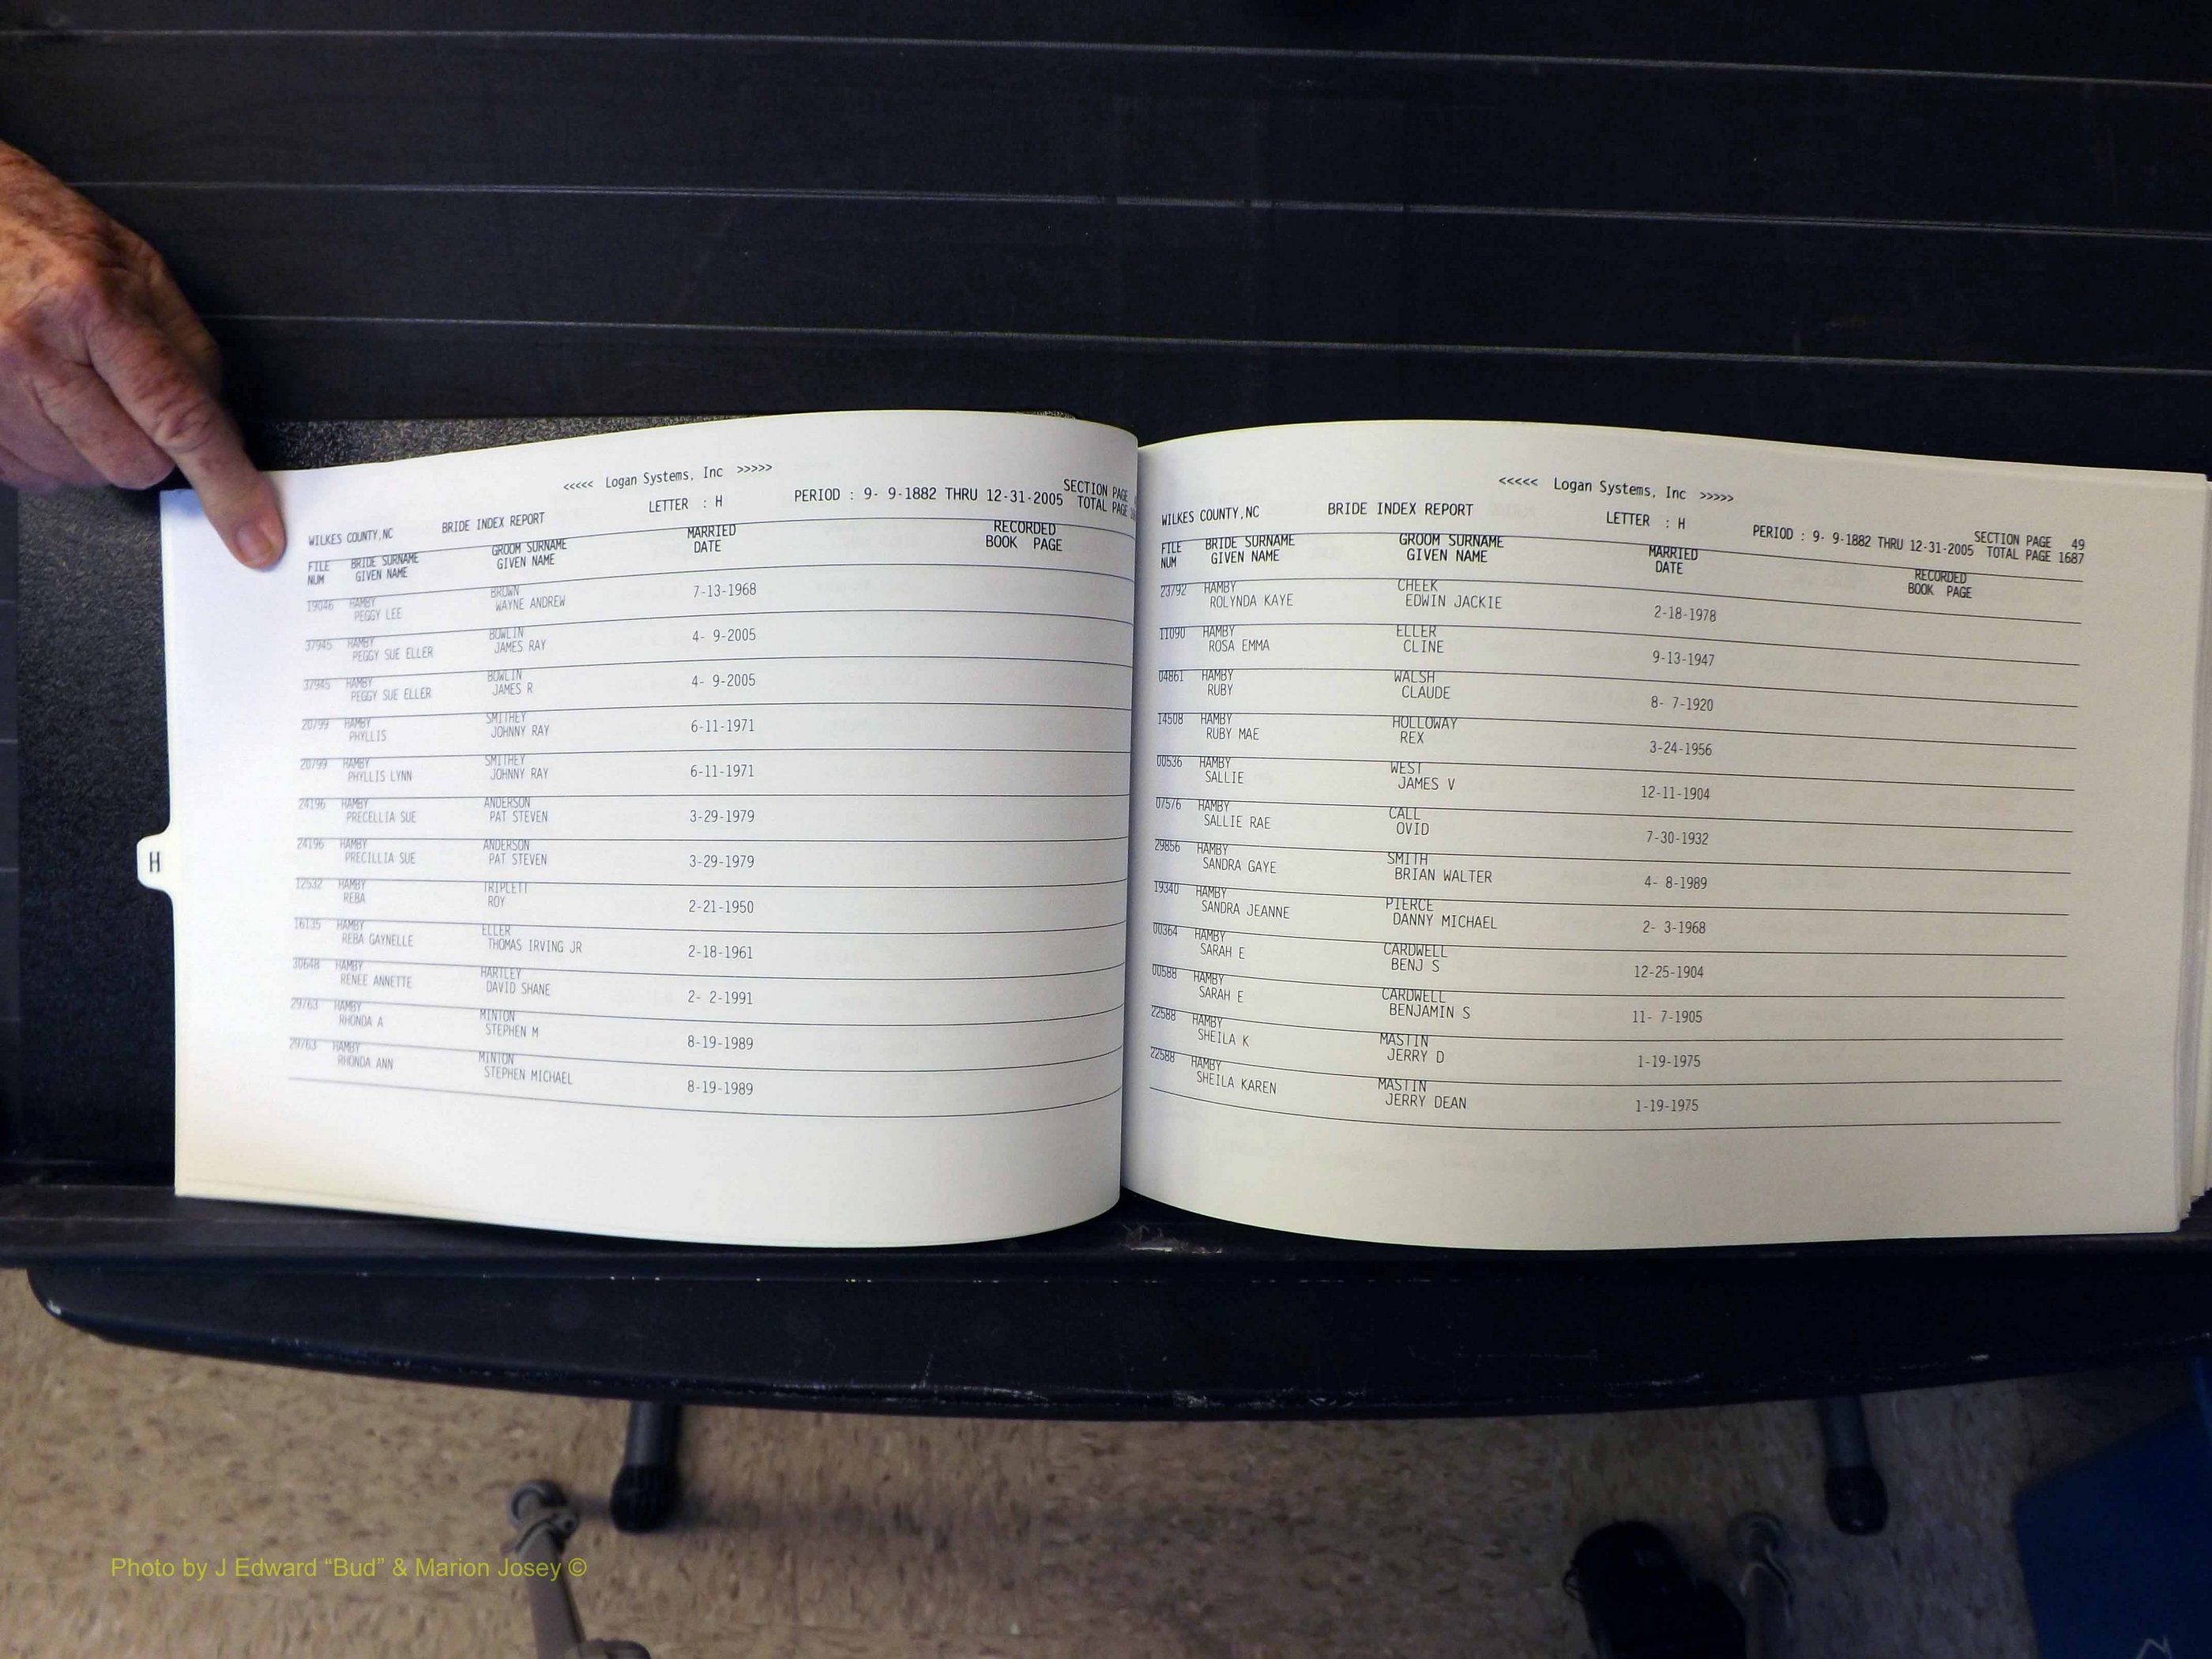 <<<<< Logan Systems, Inc >>>>>
WILKES COUNTY,NC BRIDE INDEX REPORT LETTER : H PERIOD : 9- 9-1882 THRU 12-31-2005 SECTION PAGE
TOTAL PAGE
FILE BRIDE SURNAME GROOM SURNAME MARRIED RECORDED
NUM GIVEN NAME GIVEN NAME DATE BOOK PAGE
19046 HAMBY BROWN
PEGGY LEE WAYNE ANDREW 7-13-1968
37945 HAMBY BOWLIN
PEGGY SUE ELLER JAMES RAY 4- 9-2005
37945 HAMBY BOWLIN
PEGGY SUE ELLER JAMES R 4- 9-2005
20799 HAMBY SMITHEY
PHYLLIS JOHNNY RAY 6-11-1971
20799 HAMBY SMITHEY
PHYLLIS LYNN JOHNNY RAY 6-11-1971
24196 HAMBY ANDERSON
PRECELLIA SUE PAT STEVEN 3-29-1979
24196 HAMBY ANDERSON
PRECILLIA SUE PAT STEVEN 3-29-1979
12532 HAMBY TRIPLETT
REBA ROY 2-21-1950
16135 HAMBY ELLER
REBA GAYNELLE THOMAS IRVING JR 2-18-1961
30648 HAMBY HARTLEY
RENEE ANNETTE DAVID SHANE 2- 2-1991
29763 HAMBY MINTON
RHONDA A STEPHEN M 8-19-1989
29763 HAMBY MINTON
RHONDA ANN STEPHEN MICHAEL 8-19-1989
H
<<<<< Logan Systems, Inc >>>>>
WILKES COUNTY,NC BRIDE INDEX REPORT LETTER : H PERIOD : 9- 9-1882 THRU 12-31-2005 SECTION PAGE 49
TOTAL PAGE 1687
FILE BRIDE SURNAME GROOM SURNAME MARRIED RECORDED
NUM GIVEN NAME GIVEN NAME DATE BOOK PAGE
23792 HAMBY CHEEK
ROLYNDA KAYE EDWIN JACKIE 2-18-1978
11090 HAMBY ELLER
ROSA EMMA CLINE 9-13-1947
04861 HAMBY WALSH
RUBY CLAUDE 8- 7-1920
14508 HAMBY HOLLOWAY
RUBY MAE REX 3-24-1956
00536 HAMBY WEST
SALLIE JAMES V 12-11-1904
07576 HAMBY CALL
SALLIE RAE OVID 7-30-1932
29856 HAMBY SMITH
SANDRA GAYE BRIAN WALTER 4- 8-1989
19340 HAMBY PIERCE
SANDRA JEANNE DANNY MICHAEL 2- 3-1968
00364 HAMBY CARDWELL
SARAH E BENJ S 12-25-1904
00588 HAMBY CARDWELL
SARAH E BENJAMIN S 11- 7-1905
22588 HAMBY MASTIN
SHEILA K JERRY D 1-19-1975
22588 HAMBY MASTIN
SHEILA KAREN JERRY DEAN 1-19-1975
Photo by J Edward “Bud” & Marion Josey ©